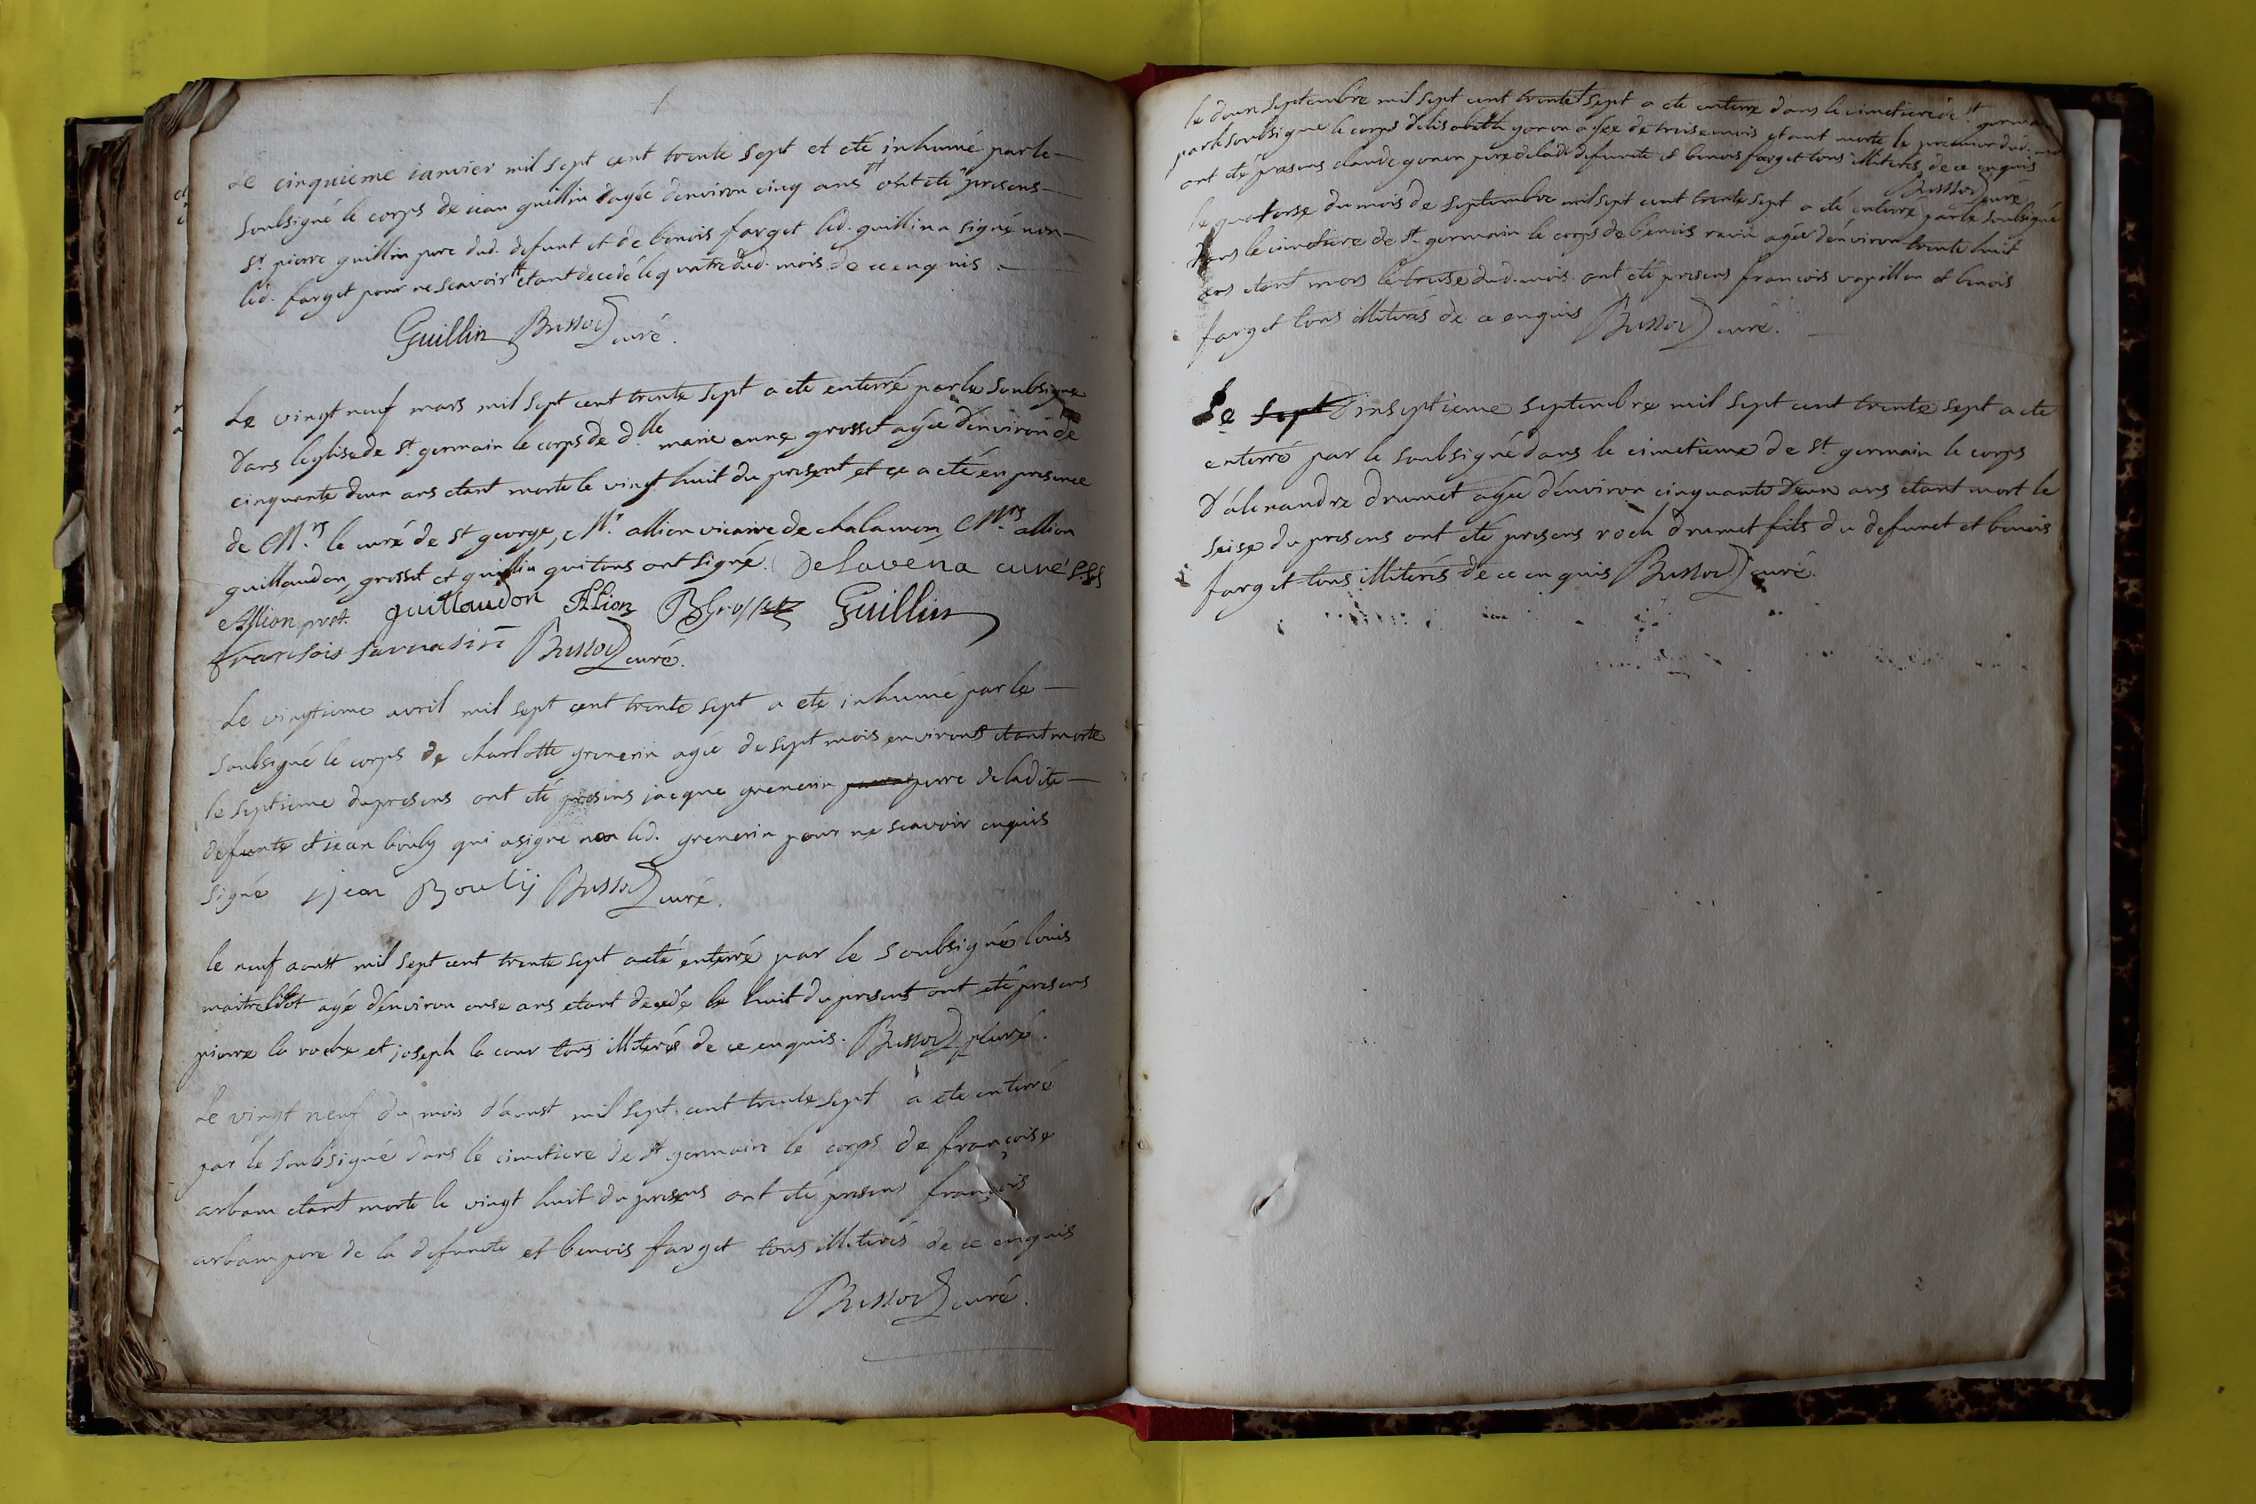 Le cinquieme ianvier mil sept cent trente sept et eté inhumé par le
soubsigné le corps de iean guillin dagée denviron cinq ans ont eté presens
Sr. pierre guillin pere dud. defunt et de benois farget led. guillin a signé non
led. farget pour ne scavoir etant decedé le quatre dud. mois de ce enquis
Guillin Bussod curé.
Le vingt neuf mars mil sept cent trente sept a ete enterré par le soubsigné
dans leglise de st. germain le corps de dlle marie anne grosset agée d'environ de
cinquante deux ans etant morte le vingt huit du present et ce a eté en presence
de Mrs le curé de st george, Mr allion vicaire de chalamon, Mrs allion
guillaudon, grosset et guillin qui tous ont signé. De Lavena curé
Allion prét. guillaudon Allion Grosset Guillin
francois Bussod curé.
Le vingtieme avril mil sept cent trente sept a eté inhumé par le
soubsigné le corps de charlotte grenerin agée de sept mois environt etant morte
le septieme du presens ont eté presens jacque grenerin perre de ladite
defunte et iean bouly qui a signé non led. grenerin pour ne scavoir enquis
signé jean Bouly Bussod curé.
le neuf aoust mil sept cent trente sept a eté enterré par le soubsigné louis
agé d'environ onse ans etant decedé le huit du present ont eté presens
pierre la roche et joseph la cour tous illiterés de ce enquis. Bussod curé.
Le vingt neuf du mois d'aoust mil sept cent trente sept a ete enterré
par le soubsigné dans le cimetiere de st germain le corps de françoise
arbam etant morte le vingt huit du presens ont eté presens françois
arbam pere de la defuncte et benois farget tous illiterés de ce enquis
Bussod curé.
le deux septembre mil sept cent trente sept a ete enterré dans le cimetiere de st. germain
par le soubsigné le corps d'elisabeth gonon agée de trois mois etant morte le premier dud. mois
ont eté presens claude gonon pere de lade defuncte et benois farget tous illiterés de ce enquis
Bussod curé
le quatorse du mois de septembre mil sept cent trente sept a eté enterré par le soubsigné
dans le cimetiere de st. germain le corps de benois ravin agée d'environ trente huit
ans etant mors le treise dud. mois ont eté presens francois vapillon et benois
farget tous illiterés de ce enquis Bussod curé.
Le sept dixseptieme septembre mil sept cent trente sept a ete
enterré par le soubsigné dans le cimetiere de st germain le corps
d'alexandre drumet agée d'environ cinquante deux ans etant mort le
seise du presens ont eté presens roch drumet fils du defunct et benois
farget tous illiterés de ce enquis Bussod curé.